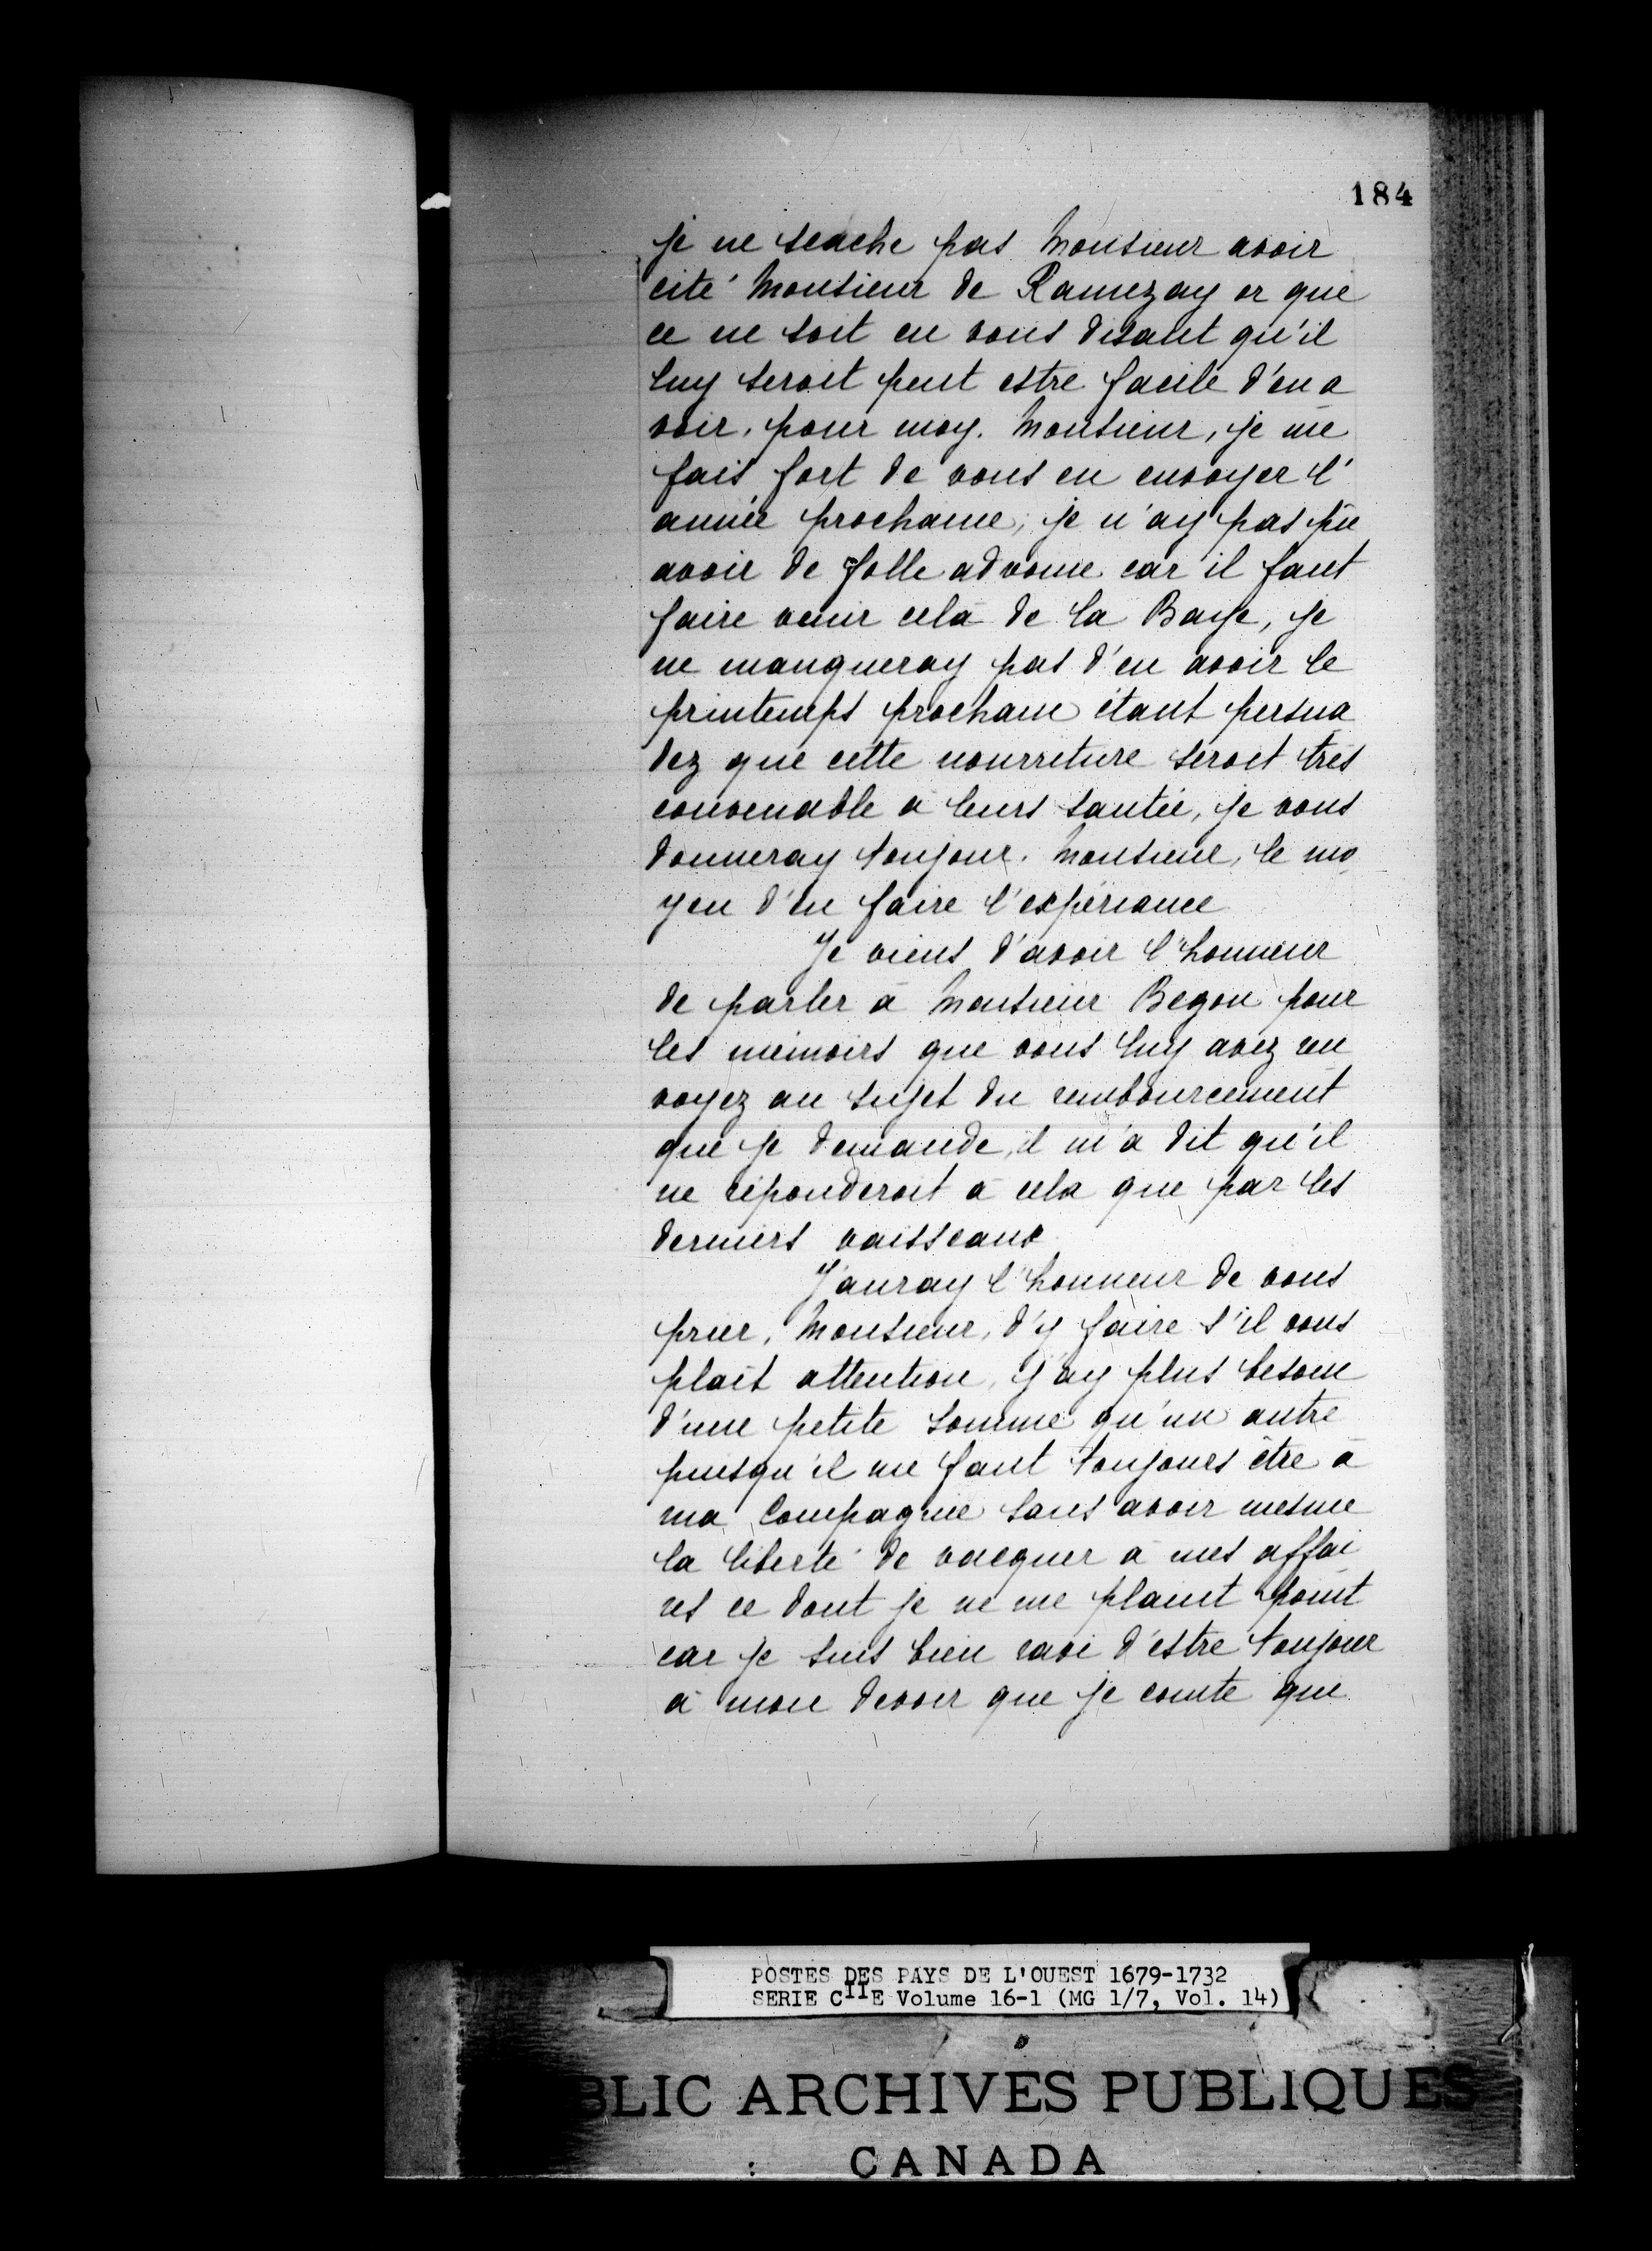 184
je ne scache pas Monsieur avoir
cité Monsieur de Ramezay or que
ce ne soit en vous disant qu'il
luy seroit peut estre facile d'en a
voir, pour moy. Monsieur, je me
fais fort de vous en envoyer l'
année prochaine, je n'ay pas pû
avoir de folle advoine car il faut
faire venir cela de la Baye, je
ne manqueray pas d'en avoir le
printemps prochain étant persua
dez que cette nourriture seroit très
convenable à leurs santée, je vous
donneray toujour. Monsieur, le mo
yen d'en faire l'expériance
Je viens d'avoir l'honneur
de parler à Monsieur Begon pour
les mémoirs que vous luy avez ren
voyez au sujet du rembourcement
que je demande, il m'a dit qu'il
ne réponderoit à cela que par les
derniers vaisseaux
J'auray l'honneur de vous
prier, Monsieur, d'y faire s'il vous
plaît attention, j'ay plus besoin
d'une petite somme qu'un autre
puisqu'il me faut toujours être à
ma Compagnie sans avoir mesme
la liberté de vacquer à mes affai
res ce dont je ne me plaint point
car je suis bien ravi d'estre toujour
à mon devoir que je comte que
POSTES DES PAYS DE L'OUEST 1679-1732
SERIE CIIE Volume 16-1 (MG 1/7, Vol. 14)
BLIC ARCHIVES PUBLIQUES
CANADA